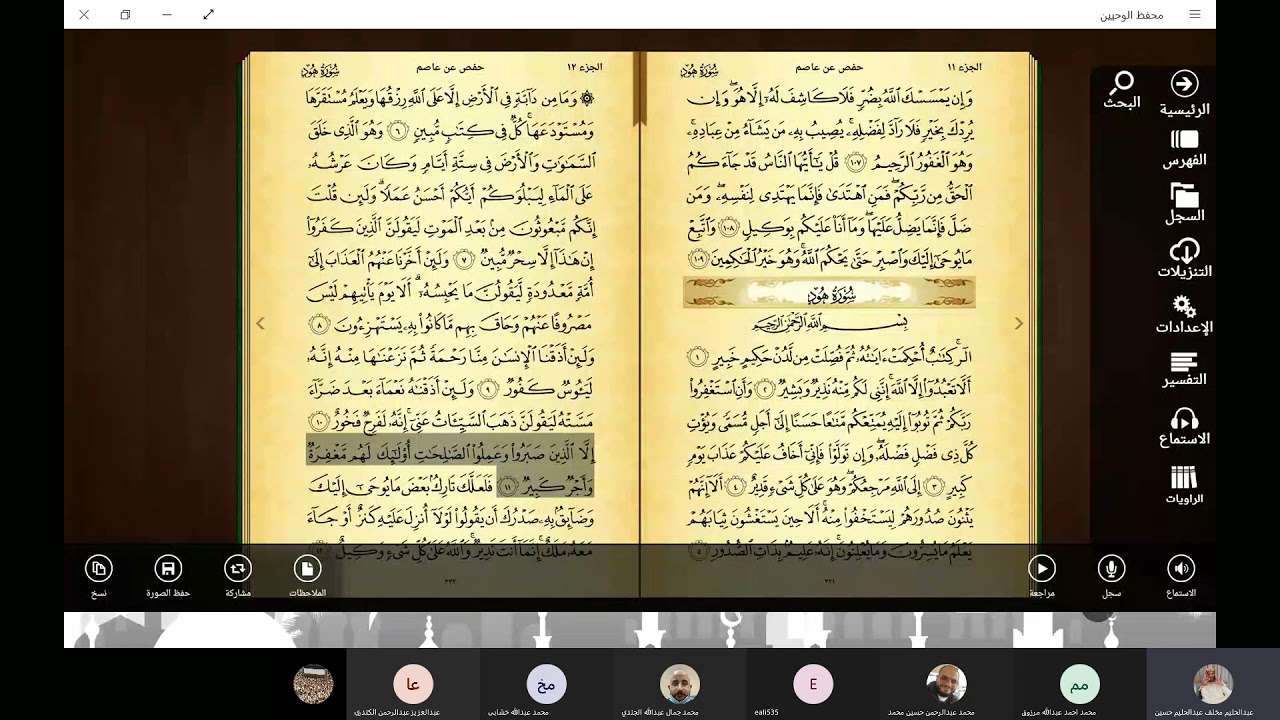 محفظ الوحيين
الرئيسية
البحث
الفهرس
السجل
التنزيلات
الإعدادات
التفسير
الاستماع
الراويات
الجزء ١١
حفص عن عاصم
سورة هود
وَإِن يَمْسَسْكَ ٱللَّهُ بِضُرٍّ فَلَا كَاشِفَ لَهُۥٓ إِلَّا هُوَ ۖ وَإِن
يُرِدْكَ بِخَيْرٍ فَلَا رَآدَّ لِفَضْلِهِۦ ۚ يُصِيبُ بِهِۦ مَن يَشَآءُ مِنْ عِبَادِهِۦ ۚ
وَهُوَ ٱلْغَفُورُ ٱلرَّحِيمُ ١٠٧ قُلْ يَٰٓأَيُّهَا ٱلنَّاسُ قَدْ جَآءَكُمُ
ٱلْحَقُّ مِن رَّبِّكُمْ ۖ فَمَنِ ٱهْتَدَىٰ فَإِنَّمَا يَهْتَدِى لِنَفْسِهِۦ ۖ وَمَن
ضَلَّ فَإِنَّمَا يَضِلُّ عَلَيْهَا ۖ وَمَآ أَنَا۠ عَلَيْكُم بِوَكِيلٍ ١٠٨ وَٱتَّبِعْ
مَا يُوحَىٰٓ إِلَيْكَ وَٱصْبِرْ حَتَّىٰ يَحْكُمَ ٱللَّهُ ۚ وَهُوَ خَيْرُ ٱلْحَٰكِمِينَ ١٠٩
سُورَةُ هُودٍ
بِسْمِ ٱللَّهِ ٱلرَّحْمَٰنِ ٱلرَّحِيمِ
الٓر ۚ كِتَٰبٌ أُحْكِمَتْ ءَايَٰتُهُۥ ثُمَّ فُصِّلَتْ مِن لَّدُنْ حَكِيمٍ خَبِيرٍ ١
أَلَّا تَعْبُدُوٓا۟ إِلَّا ٱللَّهَ ۚ إِنَّنِى لَكُم مِّنْهُ نَذِيرٌ وَبَشِيرٌ ٢ وَأَنِ ٱسْتَغْفِرُوا۟
رَبَّكُمْ ثُمَّ تُوبُوٓا۟ إِلَيْهِ يُمَتِّعْكُم مَّتَٰعًا حَسَنًا إِلَىٰٓ أَجَلٍ مُّسَمًّى وَيُؤْتِ
كُلَّ ذِى فَضْلٍ فَضْلَهُۥ ۖ وَإِن تَوَلَّوْا۟ فَإِنِّىٓ أَخَافُ عَلَيْكُمْ عَذَابَ يَوْمٍ
كَبِيرٍ ٣ إِلَى ٱللَّهِ مَرْجِعُكُمْ ۖ وَهُوَ عَلَىٰ كُلِّ شَىْءٍ قَدِيرٌ ٤ أَلَآ إِنَّهُمْ
يَثْنُونَ صُدُورَهُمْ لِيَسْتَخْفُوا۟ مِنْهُ ۚ أَلَا حِينَ يَسْتَغْشُونَ ثِيَابَهُمْ
يَعْلَمُ مَا يُسِرُّونَ وَمَا يُعْلِنُونَ ۚ إِنَّهُۥ عَلِيمٌۢ بِذَاتِ ٱلصُّدُورِ ٥
٢٢١
الجزء ١٢
حفص عن عاصم
سورة هود
۞ وَمَا مِن دَآبَّةٍ فِى ٱلْأَرْضِ إِلَّا عَلَى ٱللَّهِ رِزْقُهَا وَيَعْلَمُ مُسْتَقَرَّهَا
وَمُسْتَوْدَعَهَا ۚ كُلٌّ فِى كِتَٰبٍ مُّبِينٍ ٦ وَهُوَ ٱلَّذِى خَلَقَ
ٱلسَّمَٰوَٰتِ وَٱلْأَرْضَ فِى سِتَّةِ أَيَّامٍ وَكَانَ عَرْشُهُۥ
عَلَى ٱلْمَآءِ لِيَبْلُوَكُمْ أَيُّكُمْ أَحْسَنُ عَمَلًا ۗ وَلَئِن قُلْتَ
إِنَّكُم مَّبْعُوثُونَ مِنۢ بَعْدِ ٱلْمَوْتِ لَيَقُولَنَّ ٱلَّذِينَ كَفَرُوٓا۟
إِنْ هَٰذَآ إِلَّا سِحْرٌ مُّبِينٌ ٧ وَلَئِنْ أَخَّرْنَا عَنْهُمُ ٱلْعَذَابَ إِلَىٰٓ
أُمَّةٍ مَّعْدُودَةٍ لَّيَقُولُنَّ مَا يَحْبِسُهُۥٓ ۗ أَلَا يَوْمَ يَأْتِيهِمْ لَيْسَ
مَصْرُوفًا عَنْهُمْ وَحَاقَ بِهِم مَّا كَانُوا۟ بِهِۦ يَسْتَهْزِءُونَ ٨
وَلَئِنْ أَذَقْنَا ٱلْإِنسَٰنَ مِنَّا رَحْمَةً ثُمَّ نَزَعْنَٰهَا مِنْهُ إِنَّهُۥ
لَيَـُٔوسٌ كَفُورٌ ٩ وَلَئِنْ أَذَقْنَٰهُ نَعْمَآءَ بَعْدَ ضَرَّآءَ
مَسَّتْهُ لَيَقُولَنَّ ذَهَبَ ٱلسَّيِّـَٔاتُ عَنِّىٓ ۚ إِنَّهُۥ لَفَرِحٌ فَخُورٌ ١٠
إِلَّا ٱلَّذِينَ صَبَرُوا۟ وَعَمِلُوا۟ ٱلصَّٰلِحَٰتِ أُو۟لَٰٓئِكَ لَهُم مَّغْفِرَةٌ
وَأَجْرٌ كَبِيرٌ ١١ فَلَعَلَّكَ تَارِكٌۢ بَعْضَ مَا يُوحَىٰٓ إِلَيْكَ
وَضَآئِقٌۢ بِهِۦ صَدْرُكَ أَن يَقُولُوا۟ لَوْلَآ أُنزِلَ عَلَيْهِ كَنزٌ أَوْ جَآءَ
مَعَهُۥ مَلَكٌ ۚ إِنَّمَآ أَنتَ نَذِيرٌ ۚ وَٱللَّهُ عَلَىٰ كُلِّ شَىْءٍ وَكِيلٌ ١٢
٢٢٢
الاستماع
سجل
مراجعة
الملاحظات
مشاركة
حفظ الصورة
نسخ
مم
E
مخ
عا
عبدالحليم مخلف عبدالحليم حسين
محمد احمد عبدالله مرزوق
محمد عبدالرحمن حسين محمد
eali535
محمد جمال عبدالله الجندي
محمد عبدالله خشابى
عبدالعزيز عبدالرحمن الكندرى